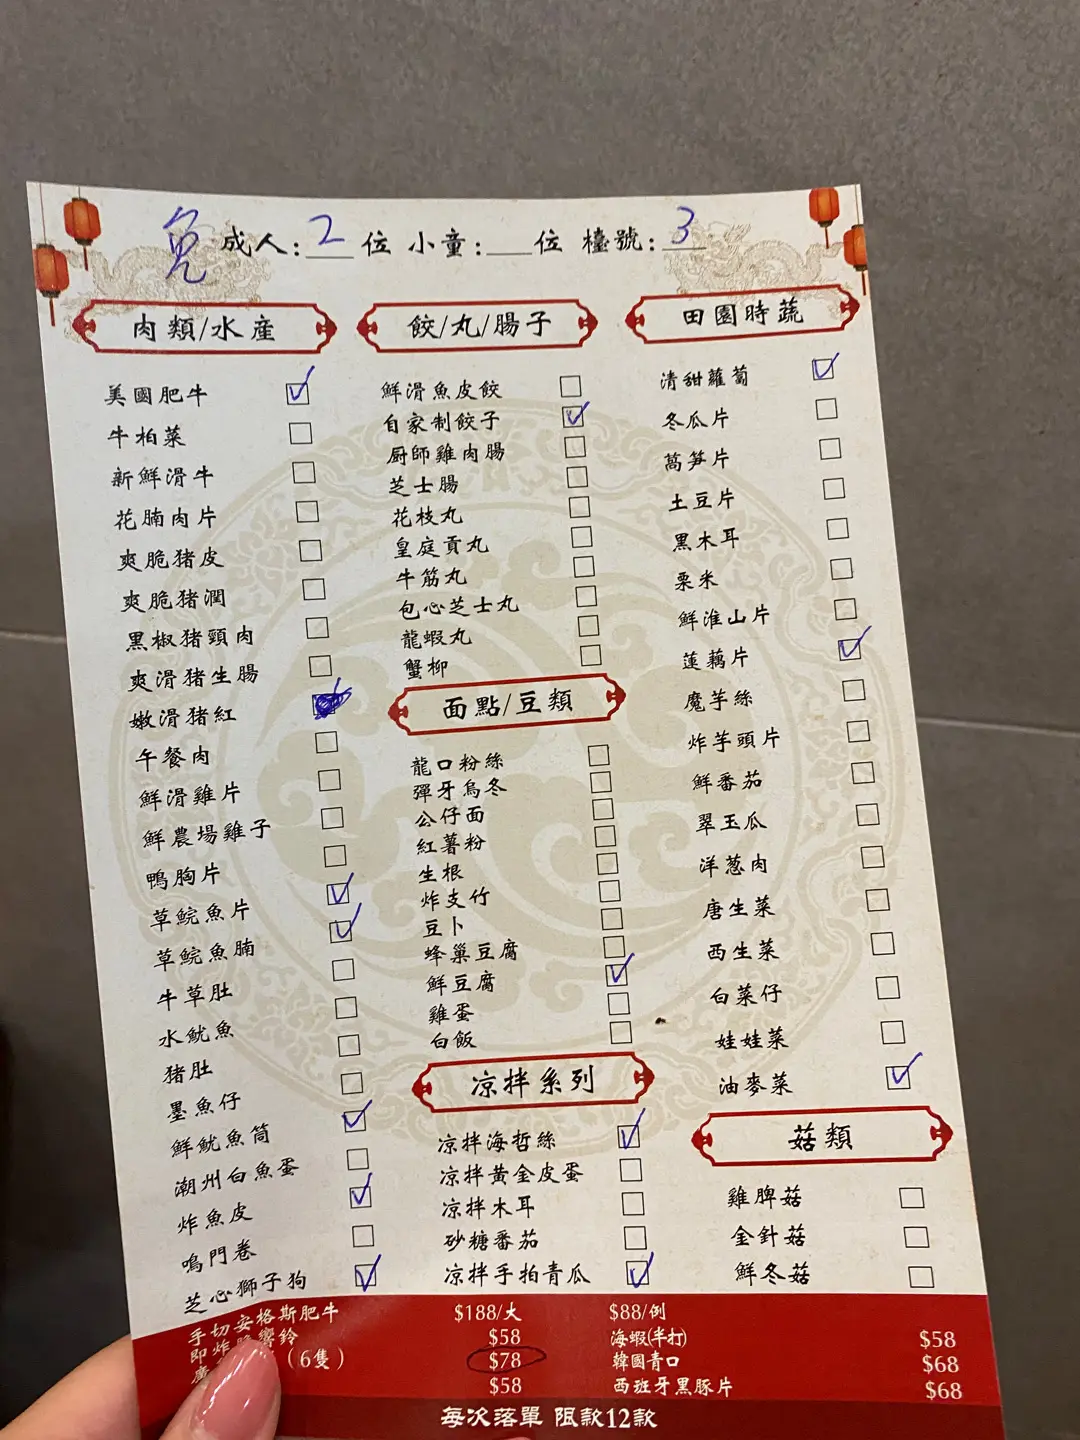 免 成人: 2 位 小童: 位 檯號: 3
肉類/水產
美國肥牛
牛柏菜
新鮮滑牛
花腩肉片
爽脆猪皮
爽脆猪潤
黑椒猪頸肉
爽滑猪生腸
嫩滑猪紅
午餐肉
鮮滑雞片
鮮農場雞子
鴨胸片
草鯇魚片
草鯇魚腩
牛草肚
水魷魚
猪肚
墨魚仔
鮮魷魚筒
潮州白魚蛋
炸魚皮
鳴門卷
芝心獅子狗
餃/丸/腸子
鮮滑魚皮餃
自家制餃子
厨師雞肉腸
芝士腸
花枝丸
皇庭貢丸
牛筋丸
包心芝士丸
龍蝦丸
蟹柳
面點/豆類
龍口粉絲
彈牙烏冬
公仔面
紅薯粉
生根
炸支竹
豆卜
蜂巢豆腐
鮮豆腐
雞蛋
白飯
凉拌系列
凉拌海哲絲
凉拌黃金皮蛋
凉拌木耳
砂糖番茄
凉拌手拍青瓜
田園時蔬
清甜蘿蔔
冬瓜片
萵笋片
土豆片
黑木耳
栗米
鮮淮山片
蓮藕片
魔芋絲
炸芋頭片
鮮番茄
翠玉瓜
洋葱肉
唐生菜
西生菜
白菜仔
娃娃菜
油麥菜
菇類
雞脾菇
金針菇
鮮冬菇
手切安格斯肥牛 $188/大 $88/例
即炸響鈴 $58 海蝦(半打) $58
(6隻) $78 韓國青口 $68
$58 西班牙黑豚片 $68
每次落單 限款12款